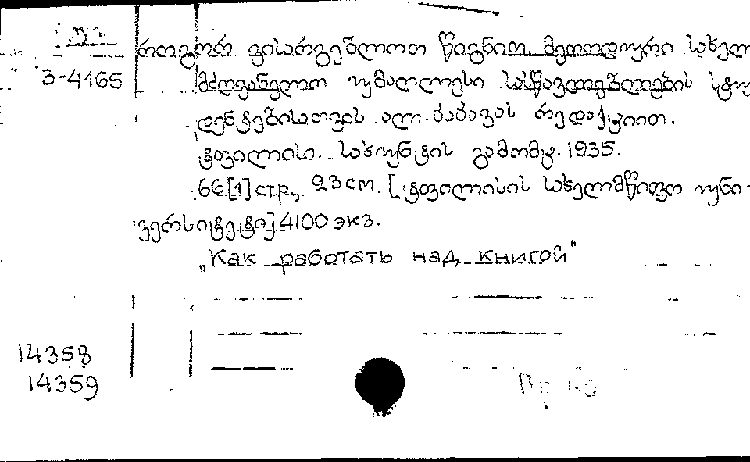 როგორ ვისარგებლოთ წიგნით მეთოდური სახელ
3-4165
მძღვანელო უმაღლესი სასწავლებლების სტუ
დენტებისათვის ალ. ბაბავას რედაქციით.
ტფილისი. საბუნტის გამომც. 1935.
66[1] стр., 23 см. [ტფილისის სახელმწიფო უნი-
ვერსიტეტი] 4100 экз.
„Как работать над книгой"
14358
14359